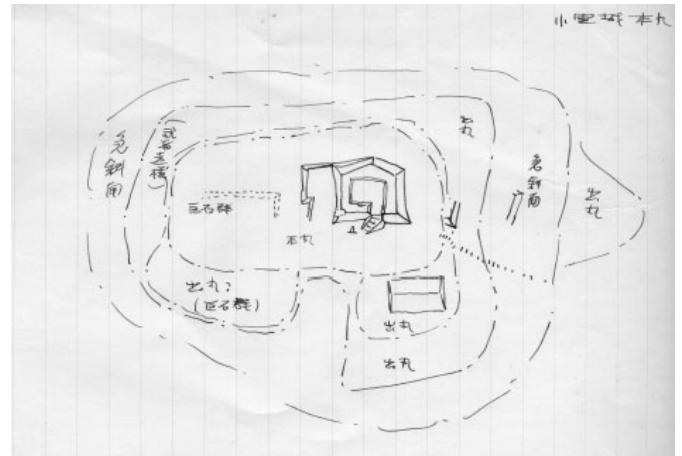 小里城本丸
急斜面
出丸
急斜面
出丸
巨石群
本丸
出丸?
(巨石群)
出丸
出丸